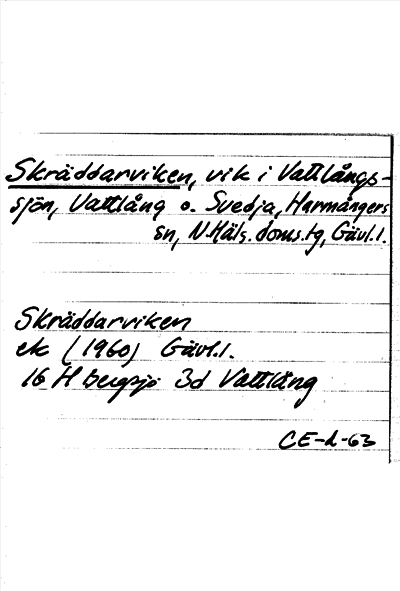 Skräddarviken, vik i Vattlångs-
sjön, Vattlång o. Svedja, Harmångers
sn, N.Häls. doms.tg, Gävl.l.
Skräddarviken
ek (1960) Gävl.l.
16 H Bergsjö 3d Vattlång
CE-d-63